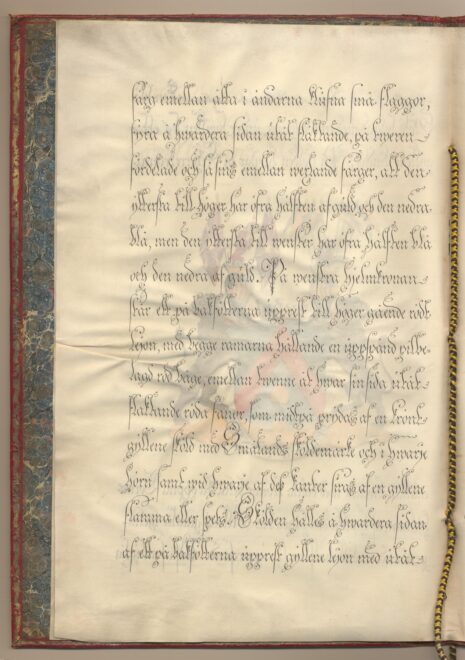 färg emellan åtta i ändarna klufna små flaggor,
fyra å hwardera sidan utåt fläktande, på tweren
fördelade och så sins emellan wexlande färger, att den
yttersta till höger har öfra hälften af guld och den nedra
blå, men den yttersta till wenster har öfra hälften blå
och den nedra af guld. På wenstra hjelmkronan
står ett på bakfötterna upprest till höger gående rödt
lejon, med begge ramarna hållande en uppspänd pilbe-
lagd röd båge, emellan twenne åt hwar sin sida utåt
fläktande röda fanor, som midtpå prydas af en krönt
gyllene sköld med Smålands sköldemärke och i hwarje
hörn samt wid hwarje af dess kanter siras af en gyllene
flamma eller spets. Skölden hålles å hwardera sidan
af ett på bakfötterna upprest gyllene lejon med utåt-